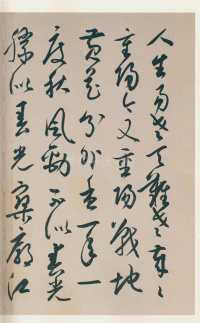 人生易老天難老歲〻
重陽今又重陽戰地
黄花分外香一年一
度秋風勁不似春光
勝似春光寥廓江